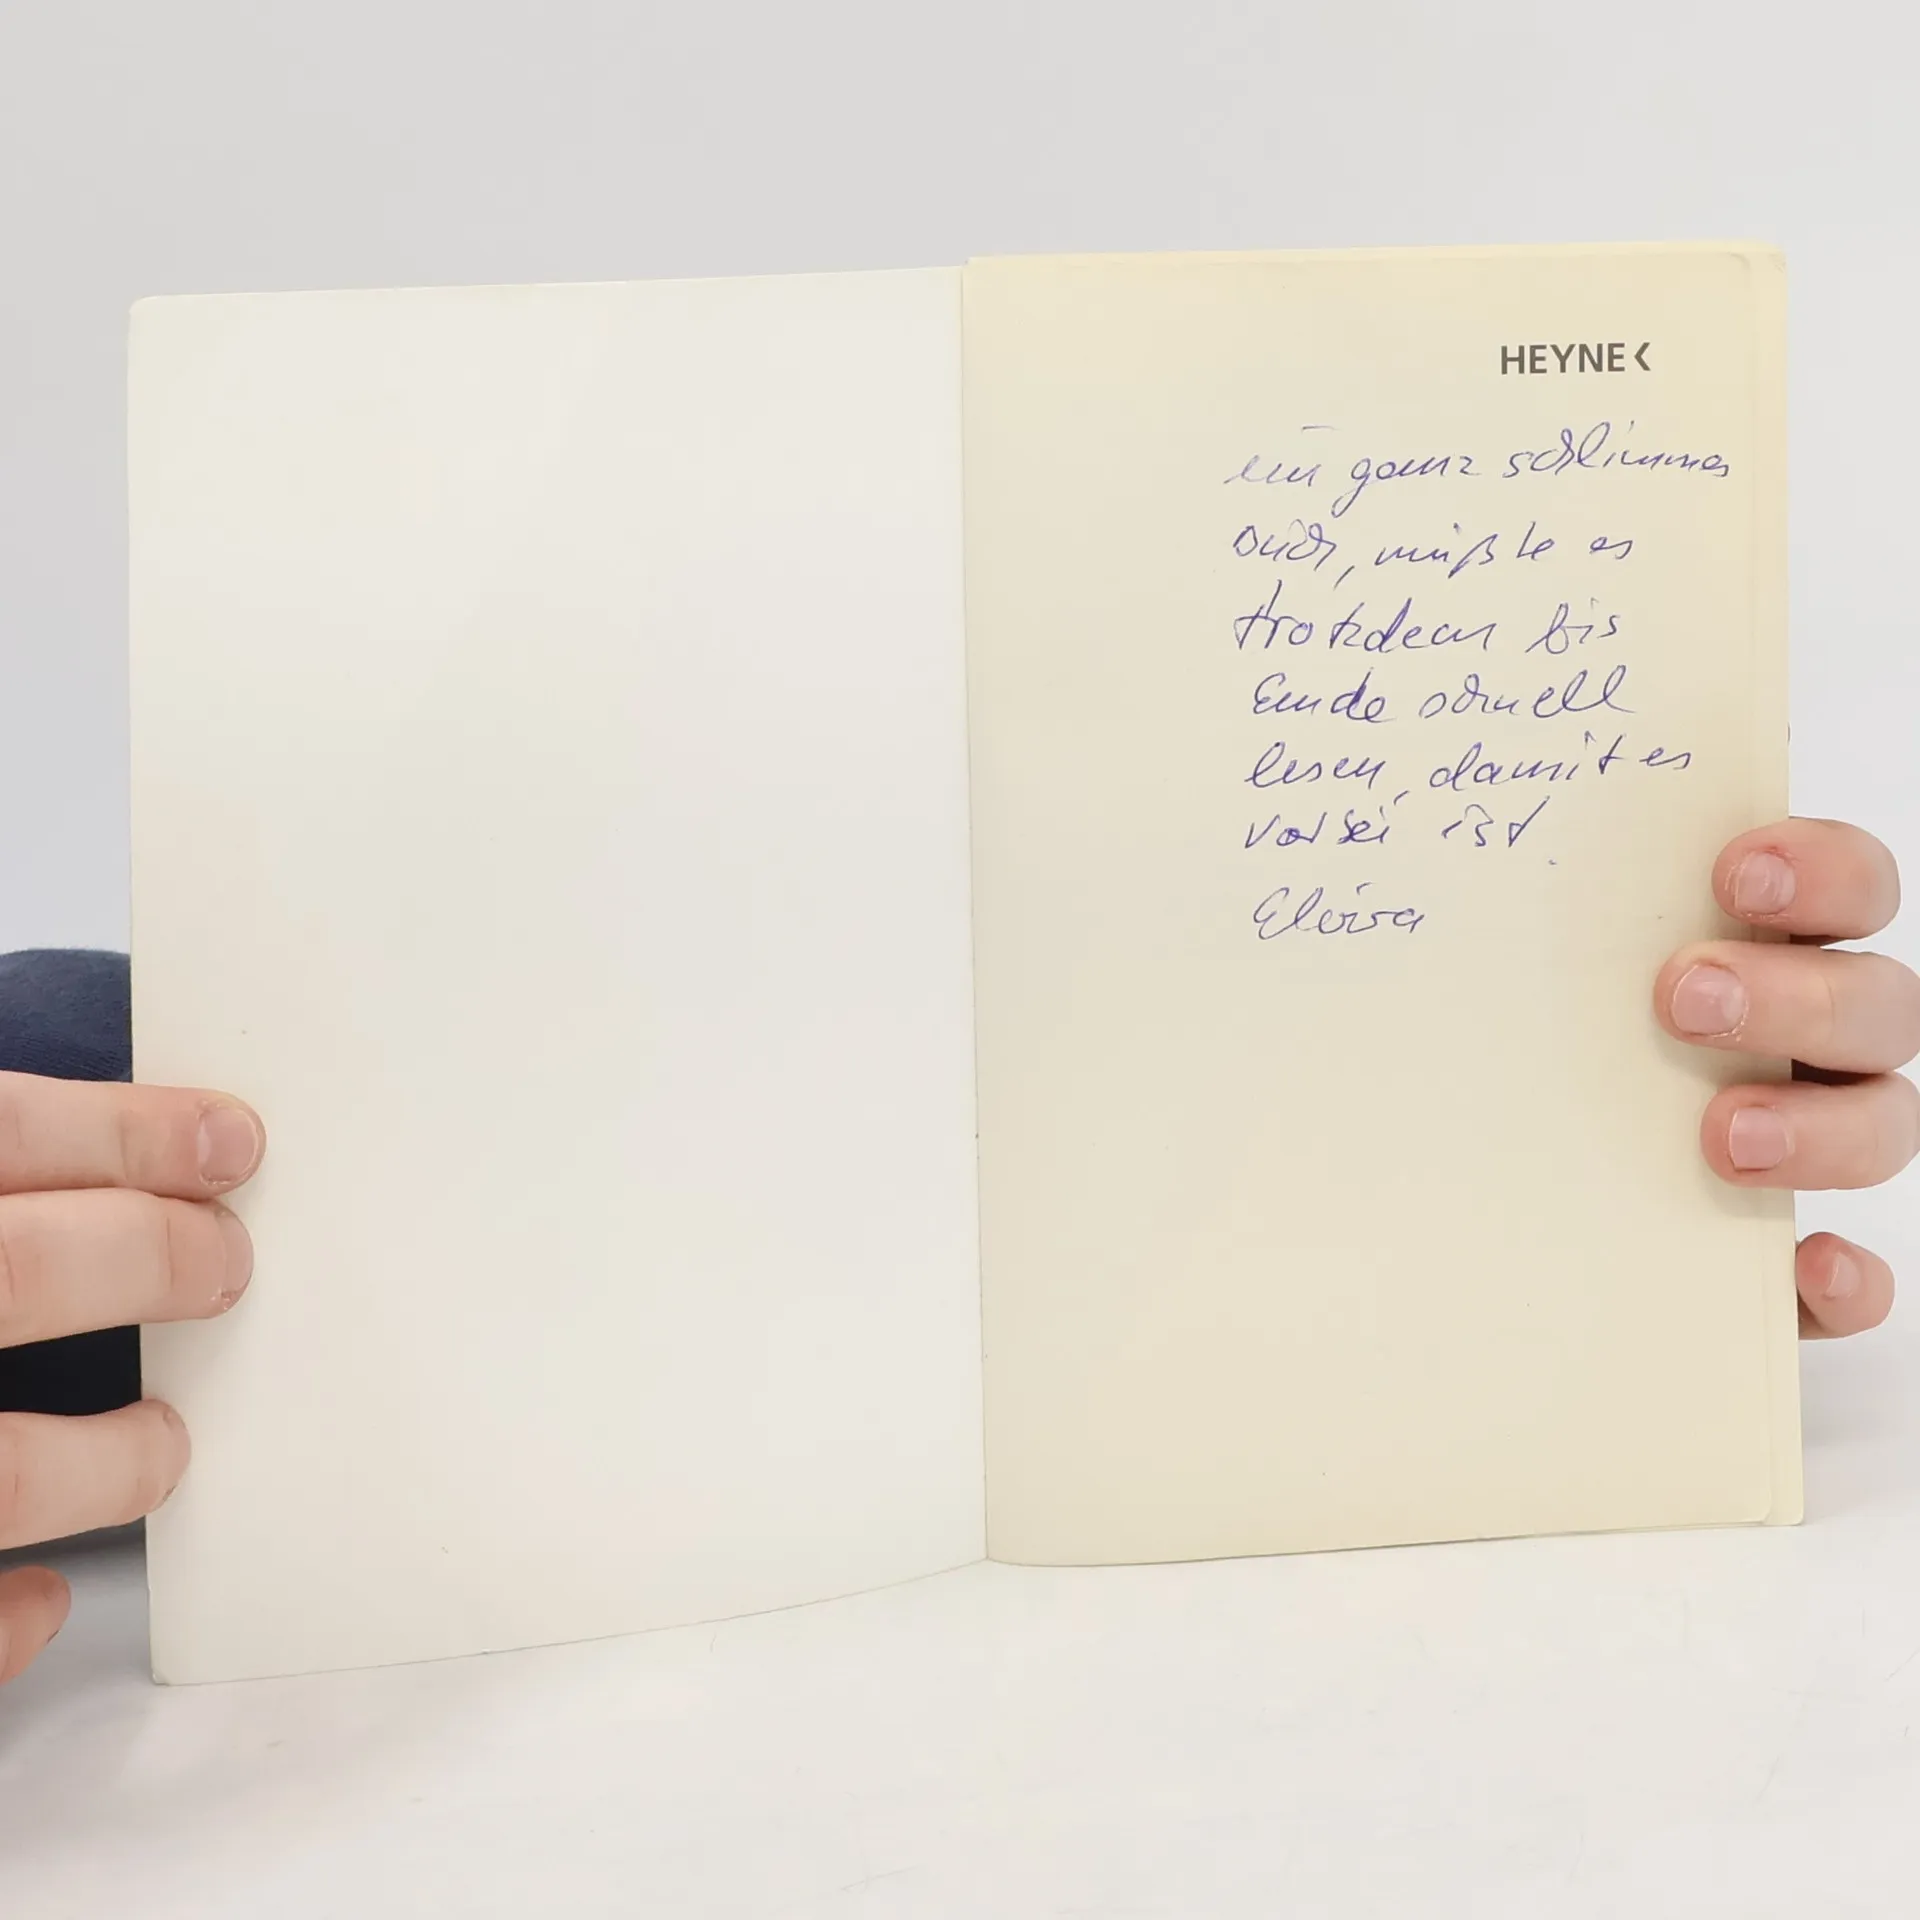 HEYNE<
ein ganz schlimmes
Buch, mußte es
trotzdem bis
Ende schnell
lesen, damit es
vorbei ist.
Elvira